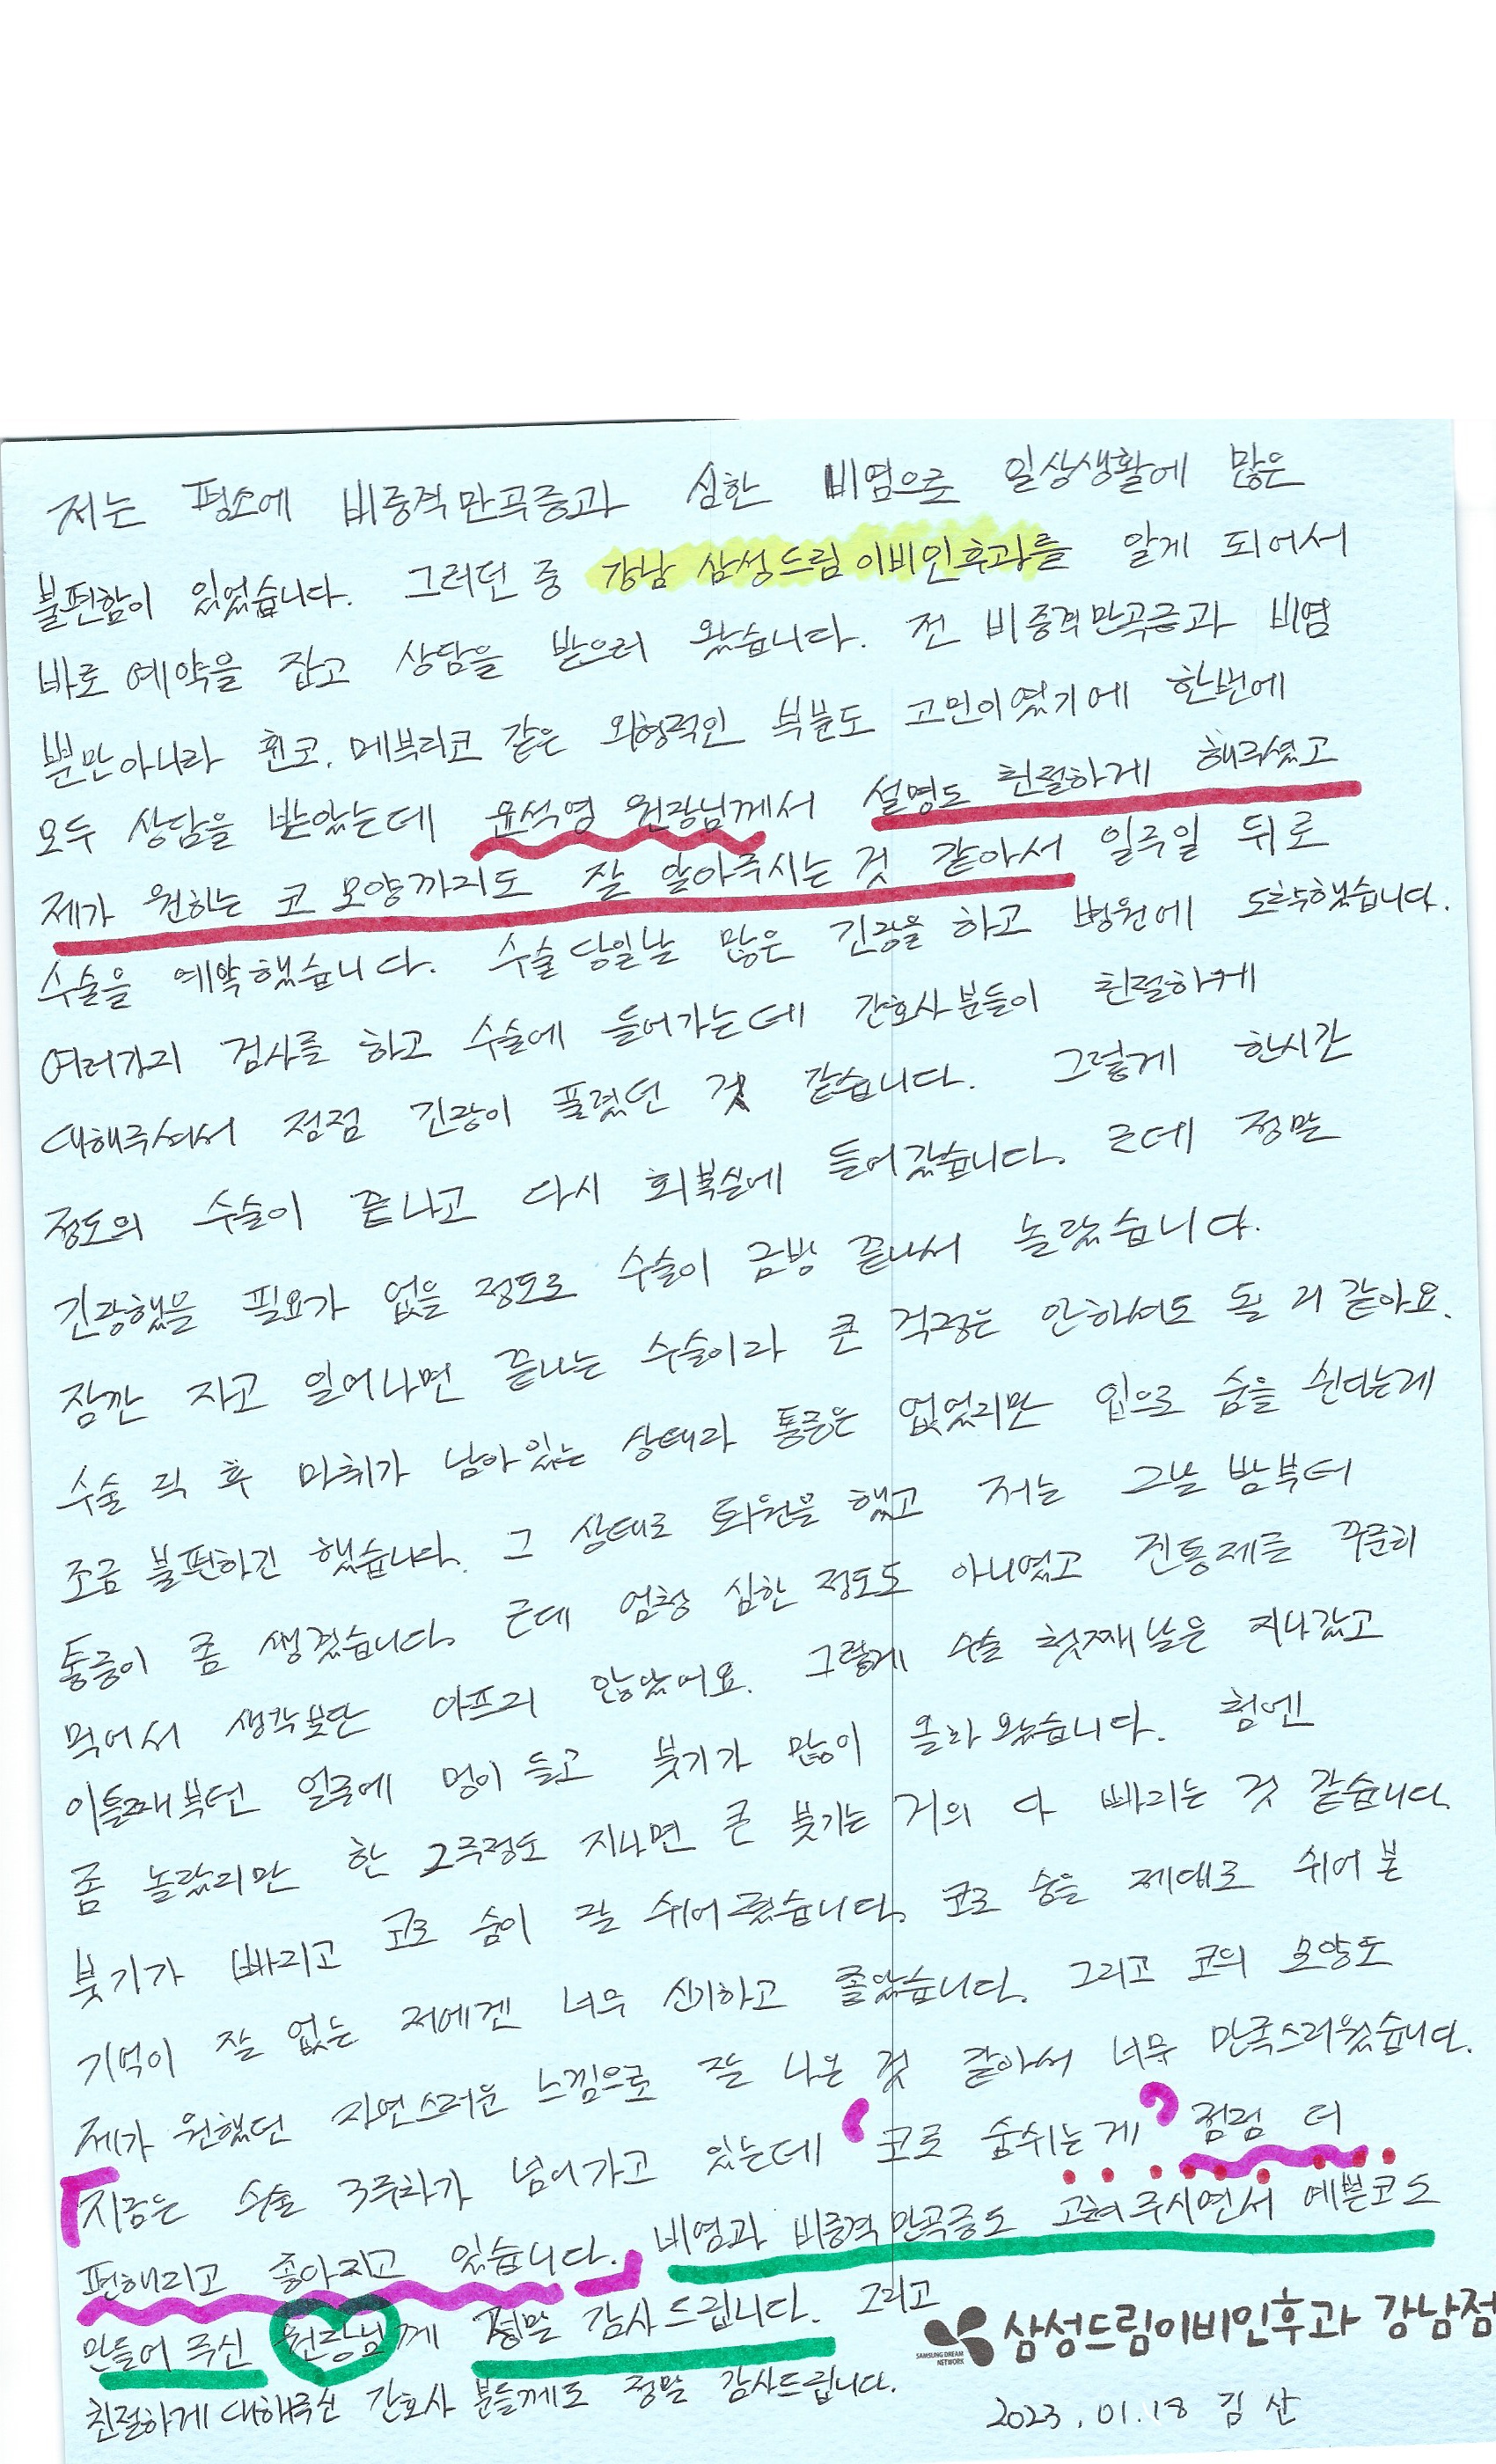 저는 평소에 비중격만곡증과 심한 비염으로 일상생활에 많은
불편함이 있었습니다. 그러던 중 강남 삼성드림이비인후과를 알게 되어서
바로 예약을 잡고 상담을 받으러 왔습니다. 전 비중격만곡증과 비염
뿐만아니라 휜코, 메부리코 같은 외형적인 부분도 고민이였기에 한번에
모두 상담을 받았는데 윤석영 원장님께서 설명도 친절하게 해주셨고
제가 원하는 코 모양까지도 잘 알아주시는 것 같아서 일주일 뒤로
수술을 예약했습니다. 수술 당일날 많은 긴장을 하고 병원에 도착했습니다.
여러가지 검사를 하고 수술에 들어가는데 간호사분들이 친절하게
대해주셔서 점점 긴장이 풀렸던 것 같습니다. 그렇게 한시간
정도의 수술이 끝나고 다시 회복실에 들어갔습니다. 근데 정말
긴장했을 필요가 없을 정도로 수술이 금방 끝나서 놀랐습니다.
잠깐 자고 일어나면 끝나는 수술이라 큰 걱정은 안하셔도 될 거 같아요.
수술 직 후 마취가 남아있는 상태라 통증은 없었지만 입으로 숨을 쉰다는게
조금 불편하긴 했습니다. 그 상태로 퇴원을 했고 저는 그날 밤부터
통증이 좀 생겼습니다. 근데 엄청 심한 정도도 아니였고 진통제를 꾸준히
먹어서 생각보단 아프지 않았어요. 그렇게 수술 첫째날은 지나갔고
이틀째부턴 얼굴에 멍이 들고 붓기가 많이 올라왔습니다. 첨엔
좀 놀랐지만 한 2주정도 지나면 큰 붓기는 거의 다 빠지는 것 같습니다.
붓기가 빠지고 코로 숨이 잘 쉬어졌습니다. 코로 숨을 제대로 쉬어 본
기억이 잘 없는 저에겐 너무 신기하고 좋았습니다. 그리고 코의 모양도
제가 원했던 자연스러운 느낌으로 잘 나온 것 같아서 너무 만족스러웠습니다.
「지금은 수술 3주차가 넘어가고 있는데 '코로 숨쉬는게' 점점 더
편해지고 좋아지고 있습니다.」 비염과 비중격만곡증도 고쳐주시면서 예쁜코로
만들어 주신 원장님께 정말 감사드립니다. 그리고
친절하게 대해주신 간호사 분들께도 정말 감사드립니다.
SAMSUNG DREAM NETWORK 삼성드림이비인후과 강남점
2023.01.18 김 산